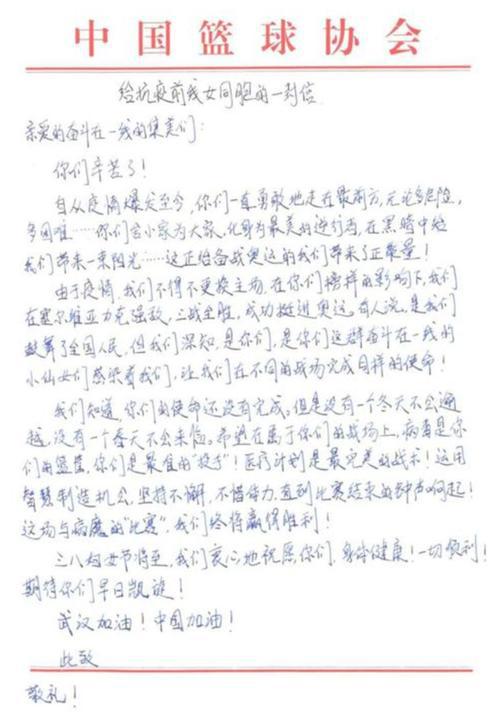 中国篮球协会
给抗疫前线女同胞的一封信
亲爱的奋斗在一线的集美们：
你们辛苦了！
自从疫情爆发至今，你们一直勇敢地走在最前方，无论多危险，
多困难……你们舍小家为大家，化身为最美的逆行者，在黑暗中给
我们带来一束阳光……这正给备战奥运的我们带来了正能量！
由于疫情，我们不得不更换主场，在你们榜样的影响下，我们
在塞尔维亚力克强敌，三战全胜，成功挺进奥运，有人说，是我们
鼓舞了全国人民，但我们深知，是你们，是你们这群奋斗在一线的
小仙女们感染着我们，让我们在不同的战场完成同样的使命！
我们知道，你们的使命还没有完成。但是没有一个冬天不会逾
越，没有一个春天不会来临。希望在属于你们的战场上，病毒是你
们的篮筐，你们是最佳的"投手"！医疗计划是最完美的战术！运用
智慧制造机会，坚持不懈，不惜体力，直到比赛结束的钟声响起！
这场与病魔的"比赛"，我们终将赢得胜利！
三八妇女节将至，我们衷心地祝愿你们，身体健康！一切顺利！
期待你们早日凯旋！
武汉加油！中国加油！
此致
敬礼！